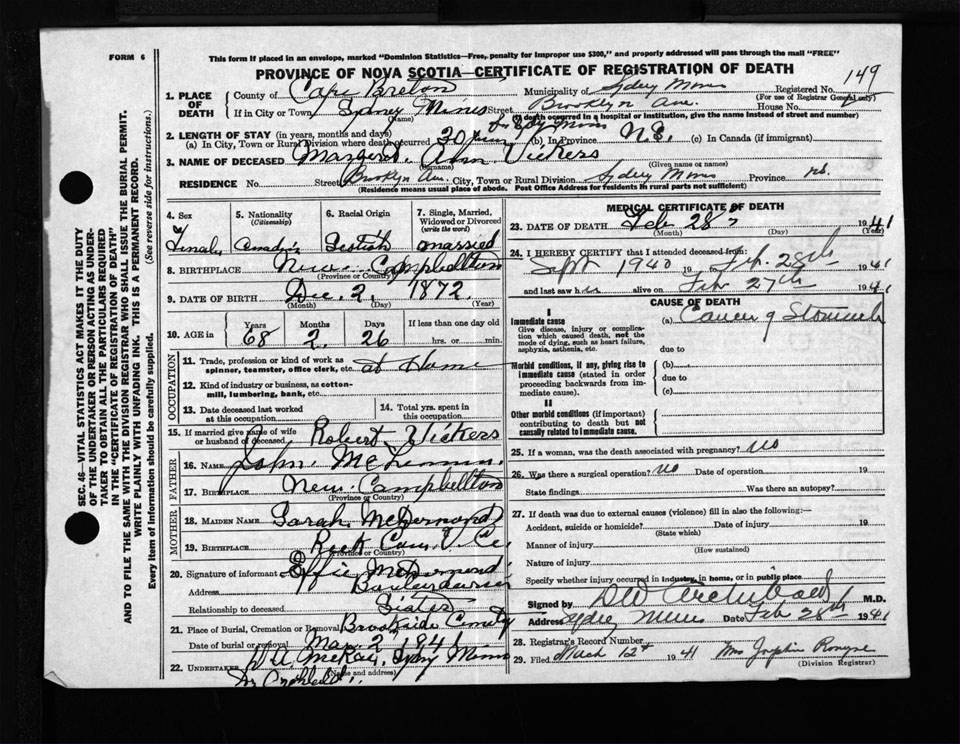 FORM 6
This form if placed in an envelope, marked "Dominion Statistics—Free, penalty for improper use $300," and properly addressed will pass through the mail "FREE"
PROVINCE OF NOVA SCOTIA—CERTIFICATE OF REGISTRATION OF DEATH
149
1. PLACE OF DEATH
County of Cape Breton Municipality of Sydney Mines Registered No.
(For use of Registrar General only)
If in City or Town Sydney Mines Street Brooklyn Ave. House No.
(Name) (If death occurred in a hospital or institution, give the name instead of street and number)
2. LENGTH OF STAY (in years, months and days)
(a) In City, Town or Rural Division where death occurred 30 (b) In Province N.S. (c) In Canada (if immigrant)
3. NAME OF DECEASED Margaret Ann Vickers
(Surname) (Given name or names)
RESIDENCE No. Street Brooklyn Ave. City, Town or Rural Division Sydney Mines Province N.S.
(Residence means usual place of abode. Post Office Address for residents in rural parts not sufficient)
4. Sex 5. Nationality (Citizenship) 6. Racial Origin 7. Single, Married, Widowed or Divorced (write the word)
Female Scotish married
8. BIRTHPLACE New Campbellton
(Province or Country)
9. DATE OF BIRTH Dec. 2, 1872.
(Month) (Day) (Year)
10. AGE in Years Months Days If less than one day old
68 2 26 hrs. or min.
OCCUPATION
11. Trade, profession or kind of work as spinner, teamster, office clerk, etc. at Home
12. Kind of industry or business, as cotton-mill, lumbering, bank, etc.
13. Date deceased last worked at this occupation
14. Total yrs. spent in this occupation
15. If married give name of wife or husband of deceased Robert Vickers
FATHER
16. NAME John
17. BIRTHPLACE New Campbellton
(Province or Country)
MOTHER
18. MAIDEN NAME Sarah
19. BIRTHPLACE
(Province or Country)
20. Signature of informant Effie
Address
Relationship to deceased Sister
21. Place of Burial, Cremation or Removal Brookside
Date of burial or removal Mar 2 1941
22. UNDERTAKER McKay, Sydney Mines
(Name and address)
MEDICAL CERTIFICATE OF DEATH
23. DATE OF DEATH Feb. 28 1941
(Month) (Day) (Year)
24. I HEREBY CERTIFY that I attended deceased from:
Sept 1940 19 to Feb. 28th 1941
and last saw her alive on Feb 27th 1941
CAUSE OF DEATH
I
Immediate cause
Give disease, injury or complication which caused death, not the mode of dying, such as heart failure, asphyxia, asthenia, etc.
(a) Cancer of Stomach
due to
Morbid conditions, if any, giving rise to immediate cause (stated in order proceeding backwards from immediate cause)
(b)
due to
(c)
II
Other morbid conditions (if important) contributing to death but not causally related to immediate cause.
25. If a woman, was the death associated with pregnancy? No
26. Was there a surgical operation? No Date of operation 19
State findings Was there an autopsy?
27. If death was due to external causes (violence) fill in also the following:—
Accident, suicide or homicide? Date of injury 19
(State which)
Manner of injury
(How sustained)
Nature of injury
Specify whether injury occurred in industry, in home, or in public place
Signed by Archibald M.D.
Address Sydney Mines Date Feb 28th 1941
28. Registrar's Record Number
29. Filed March 12th 1941 Mrs
(Division Registrar)
SEC. 46—VITAL STATISTICS ACT MAKES IT THE DUTY OF THE UNDERTAKER OR PERSON ACTING AS UNDERTAKER TO OBTAIN ALL THE PARTICULARS REQUIRED IN THE "CERTIFICATE OF REGISTRATION OF DEATH"
AND TO FILE THE SAME WITH THE DIVISION REGISTRAR WHO SHALL ISSUE THE BURIAL PERMIT.
WRITE PLAINLY WITH UNFADING INK. THIS IS A PERMANENT RECORD.
Every item of information should be carefully supplied. (See reverse side for instructions.)